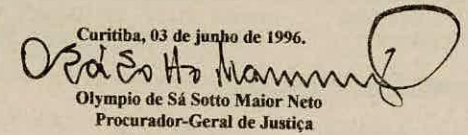 Curitiba, 03 de junho de 1996.
Olympio de Sá Sotto Maior Neto
Procurador-Geral de Justiça